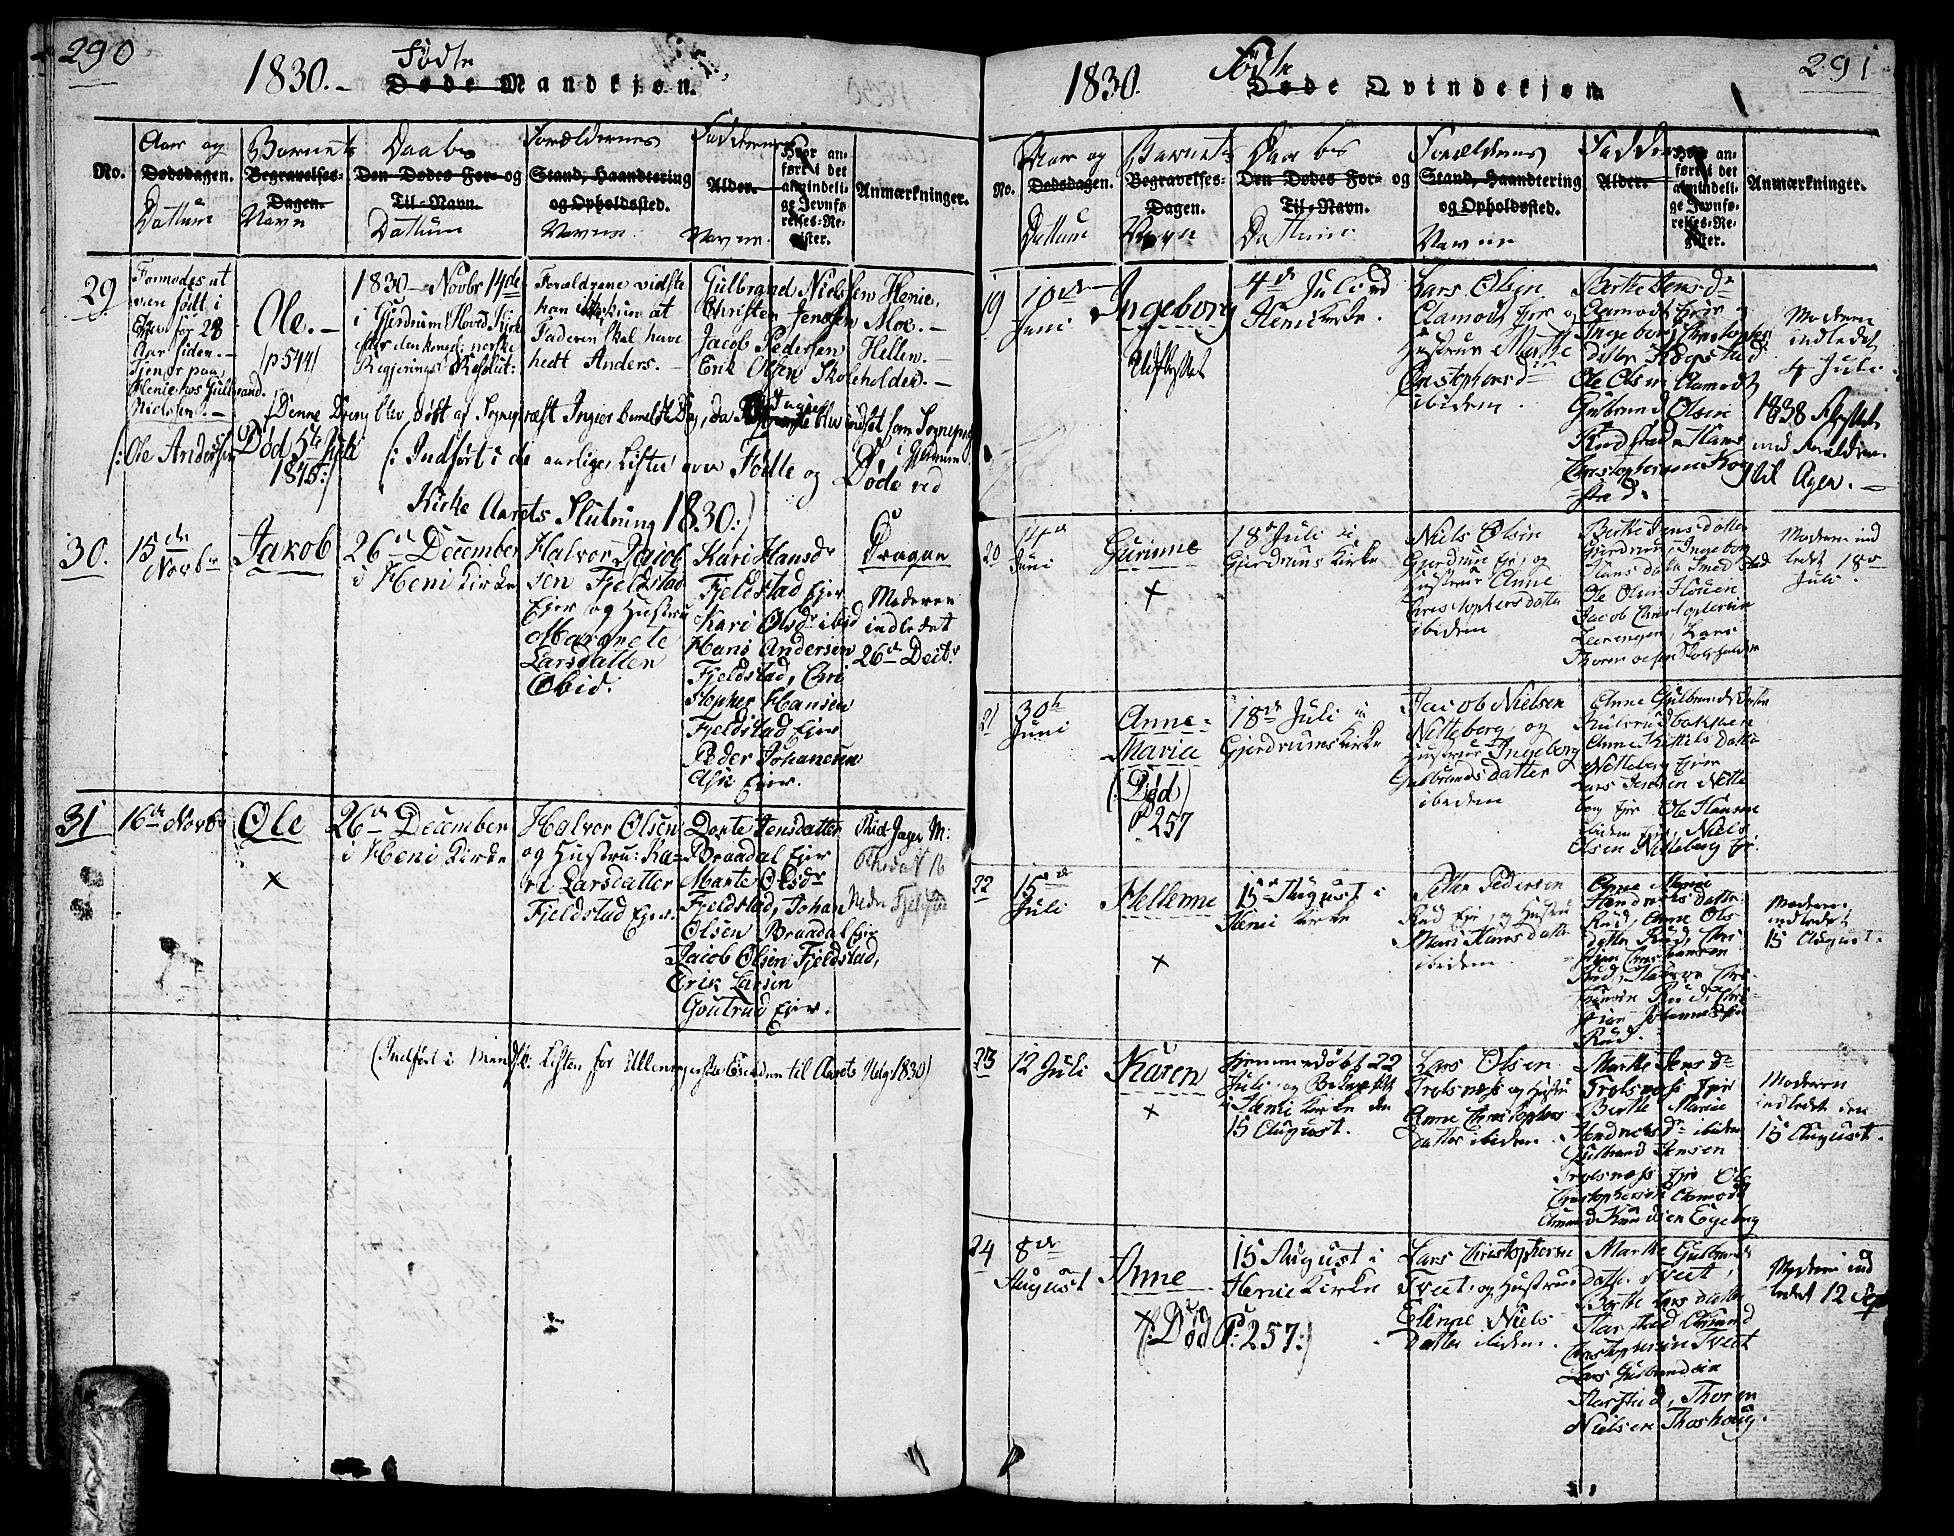 290
1830.- Fødte
Døde Mandkjøn.
No.
Aar og
Dødsdagen.
Dattum
Barnets
Begravelses-
Dagen.
Navn
Daabs
Den Dødes For- og
Til-Navn.
Dattum
Forældrenes
Stand, Haandtering
og Opholdssted.
Navne.
Faddernes
Alder.
Navne.
Hvor an-
ført i det
almindeli-
ge Jevnfø-
relses-Re-
gister.
Anmærkninger.
29
Formodes at
være født i
for 28
Aar siden.-
Tjener paa
Henie hos Gulbrand
Nielsen.-
(: Ole Andersen
Ole.-
(p544)
Død 5te Juli
1840:)
1830 - Novbr 14de
i Gjerdrum Hoved Kirke
efter den kongel: norske
Regjerings Resolut:
Forældrene vidste
han ikke kun at
Faderen skal have
hedt Anders.-
Gulbrand Nielsen Henie,
Christen Jenssen Moe.-
Jacob Pedersen Hellen.-
Erik Olsen Skoleholder.-
(Denne Dreng blev døbt af Sognepræst Ingier bemeldte Dag, da blev indsat som Sognepr.
Gjerdrum
(: Indført i de aarlige Lister over Fødte og Døde ved
Kirke Aarets Slutning 1830:)
30.
15de
Novbr
Jakob
26de December
i Heni Kirke
Halvor Jacob
sen Fjeldstad
Ejer og Hustru
Margrete
Larsdatten
Obid.
Kari Hansdr
Fjeldstad Ejer
Kari Olsdr ibid
Hans Andersen
Fjeldstad, Chri
stopher Hansen
Fjeldstad Ejer
Peder Johanesen
Ask Ejer.
Dragon
Moderen
indledet
26de Decbr.
31
16de Novbr
Ole
×
26de December
i Heni Kirke
Halvor Olsen
og Hustru: Ka-
ri Larsdatter
Fjeldstad Ejer.
Dorte Jensdatter
Braadal Ejer
Marte Olsdr
Fjeldstad, Johan
Olsen Braadal Ejer
Jacob Olsen Fjeldstad,
Erik Larsen
Goutrud Ejer.
Rid. Jæger M:
Nedre Fjeldstad
(Indført i Minist. Listen for Ullensager til Aarets Udg: 1830)
291
1830. Fødte
Døde Qvindekjøn
No.
Aar og
Dødsdagen.
Dattum
Barnets
Begravelses-
Dagen.
Navn
Daabs
Den Dødes For- og
Til-Navn.
Dattum
Forældrenes
Stand, Haandtering
og Opholdssted.
Navne
Faddernes
Alder.
Hvor an-
ført i det
almindeli-
ge Jevnfø-
relses-Re-
gister.
Anmærkninger.
19
10de
Juni
Ingeborg
Udflyttet
4de Juli ved
Heni Kirke.
Lars Olsen
Olamodt Ejer og
Hustrue Marthe
Christophersdr
ibidem.
Berthe Jensdr
Olamodt Ejer og
Ingeborg Christophers
datter Kogstad
Ole Olsen Olamodt
Gulbrand Olsen
Knud Hans
Christophersen Kog
stad.
Moderen
indledet
4 Juli.
1838 Flyttet
med Forældrene
til Ager.-
20
14de
Juni
Gurinne
×
18de Juli i
Gjerdrums Kirke
Niels Olsen
Gjerdrum Ejer, og
Hustrue Anne
Christophersdatter
ibidem
Berthe Jensdatter
Gjerdrum, Ingeborg
Hansdatter
Ole Olsen
Jacob Christophersen
Lars
Thoresen Skoleholder
Moderen ind
ledet 18de
Juli.
21
30te
Juni
Anne-
Maria
(Død)
P 257
18de Juli i
Gjerdrums Kirke
Jacob Nielsen
Nitteberg, og
Hustrue Ingeborg
Gulbrandsdatter
ibidem
Anne Gulbrandsdatter
Anne Kittilsdatter
Nitteberg Ejer
Lars Jensen Nitte
berg Ejer Ole Hansen
ibidem Ejer, Niels
Olsen Nitteberg Ejer.
22
15de
Juli
Hellenne
×
15de August i
Heni Kirke
Petter Pedersen
Rud Ejer, og Hustru
Mari Hansdatter
ibidem.
Anne Marie
Hendrichsdatter
Rud, Anne Ols
datter Rud, Chri
stian Christiansen
Rud,
Rud, Chri
stian Johannessen
Rud.
Moderen
indledet
15 August.
23
12 Juli
Karen
×
Hjemmedøbt 22
Juli, og Bekræftet
i Heni Kirke den
15 August.
Lars Olsen
Trolsnæss og Hustru
Anne Christophers
datter ibidem.
Marthe Jensdr
Trolsnæss Ejer
Berthe Marie
Hendrichsdr ibidem
Gulbrand Jensen
Trolsnæss Ejer Ole
Christophersen Olamodt
Amund Knudsen Egeberg
Moderen
indledet den
15 August.
24
8de
August
Anne
×
(: Død P: 257:)
15 August i
Henie Kirke
Lars Christophersen
Tveit, og Hustrue
Elenne Niels
datter ibidem.
Marthe Gulbrands
datter Tveit,
Berthe Larsdatter
Harstad Amund
Christophersen Tveit
Lars Gulbrandsen
Harstad, Thoren
Nielsen Thorshoug.
Moderen ind
ledet 12 Sep